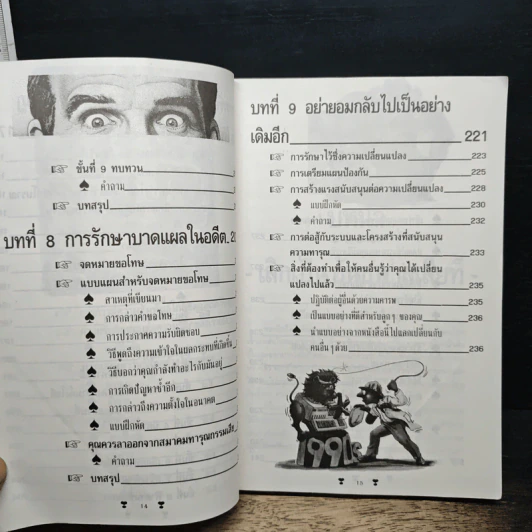 ขั้นที่ 9 ทบทวน
คำถาม
บทสรุป
บทที่ 8 การรักษาบาดแผลในอดีต
จดหมายขอโทษ
แบบแผนสำหรับจดหมายขอโทษ
สาเหตุที่เขียนมา
การกล่าวคำขอโทษ
การประกาศความรับผิดชอบ
วิธีพูดถึงความเข้าใจในผลกระทบที่เกิดขึ้น
วิธีบอกว่าคุณกำลังทำอะไรกับมันอยู่
การเกิดปัญหาซ้ำอีก
การกล่าวถึงความตั้งใจในอนาคต
แบบฝึกหัด
คุณควรลาออกจากสมาคมทารุณกรรม
คำถาม
บทสรุป
14
บทที่ 9 อย่ายอมกลับไปเป็นอย่าง
เดิมอีก 221
การรักษาไว้ซึ่งความเปลี่ยนแปลง 223
การเตรียมแผนป้องกัน 225
การสร้างแรงสนับสนุนต่อความเปลี่ยนแปลง 228
แบบฝึกหัด 230
คำถาม 232
การต่อสู้กับระบบและโครงสร้างที่สนับสนุน
ความทารุณ 233
สิ่งที่ต้องทำเพื่อให้คนอื่นรู้ว่าคุณได้เปลี่ยน
แปลงไปแล้ว 235
ปฏิบัติต่อผู้อื่นด้วยความเคารพ 235
เป็นแบบอย่างที่ดีสำหรับลูก ๆ ของคุณ 236
นำแบบอย่างจากหนังสือนี้ไปแลกเปลี่ยนกับ
คนอื่นๆ ด้วย 236
1990s
15